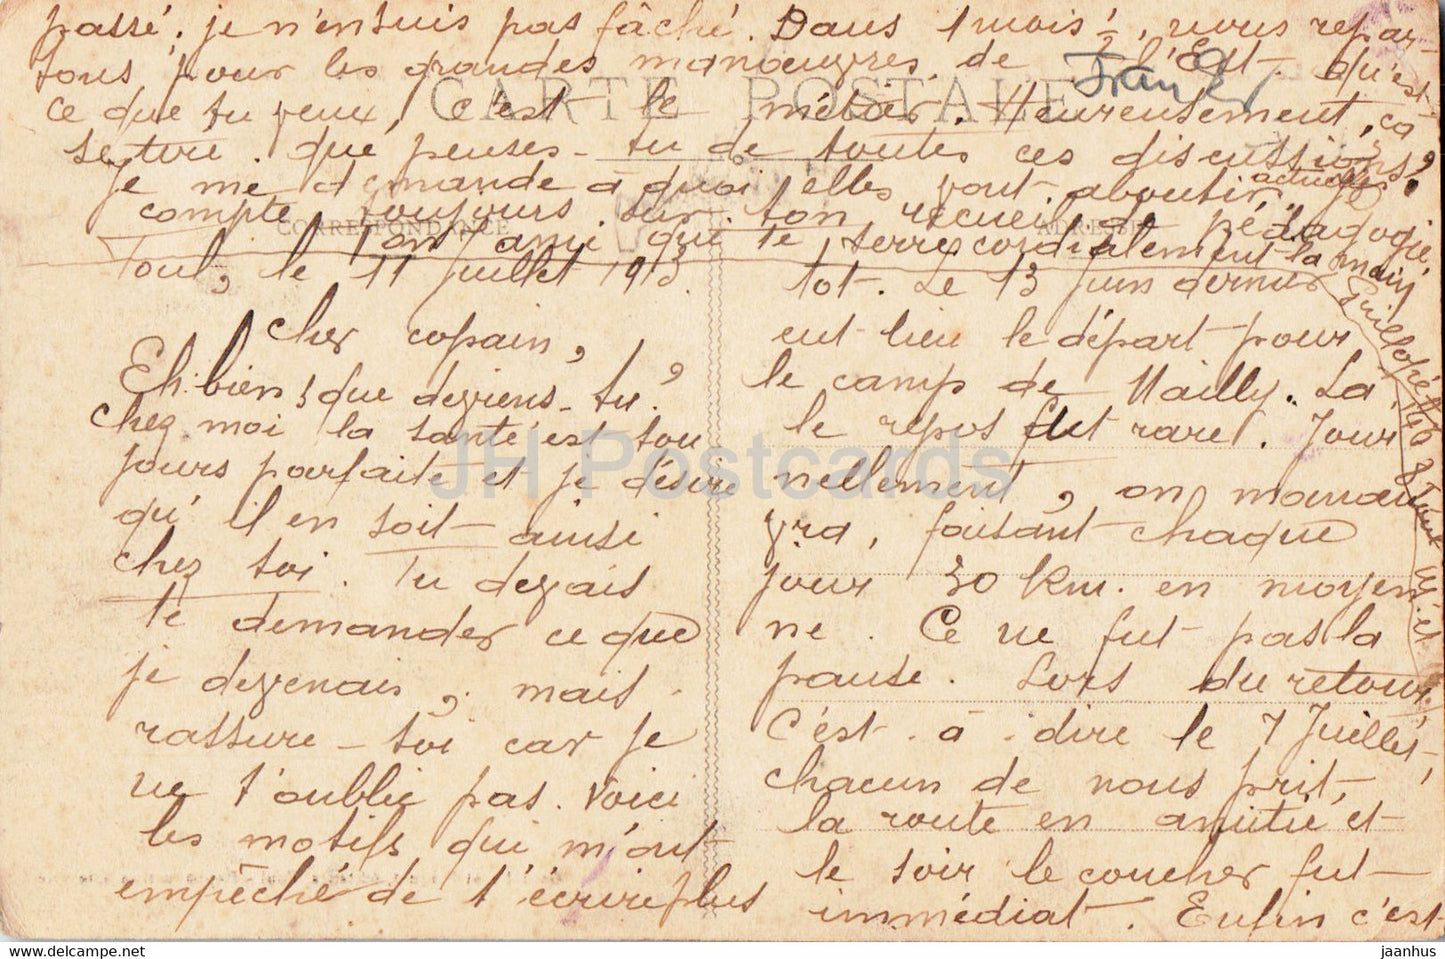 passé. je n'en suis pas fâché. Dans 1 mois ½, nous repar-
tons pour les grandes manœuvres de l'Est. qu'est-
ce que tu veux, c'est le métier. Heureusement, ça
se tire. que penses-tu de toutes ces discussions actuelles?
Je me demande à quoi elles vont aboutir. Je
compte toujours sur ton recueil de pédagogie.
Ton ami qui te serre cordialement la main
CARTE POSTALE
CORRESPONDANCE
ADRESSE
Toul, le 11 Juillet 1913.
Cher copain,
Eh bien! que deviens-tu?
chez moi la santé est tou
jours parfaite et je désire
qu'il en soit ainsi
chez toi. Tu devais
te demander ce que
je devenais, mais
rassure-toi car je
ne t'oublie pas. Voici
les motifs qui m'ont
empêché de t'écrire plus
tôt. Le 13 Juin dernier
eut lieu le départ pour
le camp de Mailly. Là
le repos fut rare. Jour
nellement, on manœu
vra, faisant chaque
jour 30 Km. en moyen
ne. Ce ne fut pas la
pause. Lors du retour
c'est-à-dire le 7 Juillet,
chacun de nous prit
la route en amitié et
le soir le coucher fut
immédiat. Enfin c'est
JH Postcards
www.delcampe.net
jaanhus